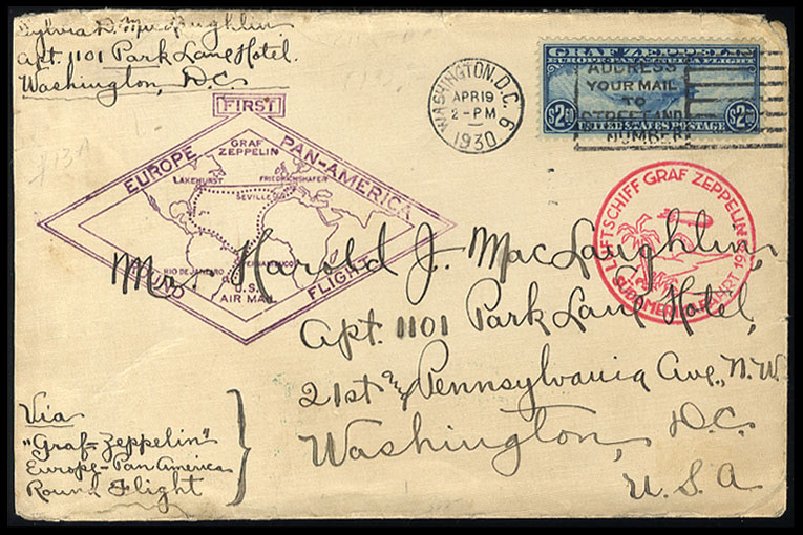 Sylvia D. MacLaughlin
Apt. 1101 Park Lane Hotel.
Washington, D.C.
FIRST
EUROPE PAN-AMERICA
ROUND FLIGHT
GRAF
ZEPPELIN
LAKEHURST
FRIEDRICHSHAFEN
SEVILLE
PERNAMBUCO
RIO DE JANEIRO
U.S.
AIR MAIL
WASHINGTON, D.C. 6
APR 19
2-PM
1930
GRAF ZEPPELIN
EUROPE PAN-AMERICA FLIGHT
ADDRESS
YOUR MAIL
TO
STREET AND
NUMBER
$2.60 $2.60
UNITED STATES POSTAGE
LUFTSCHIFF GRAF ZEPPELIN
SÜDAMERIKAFAHRT
Mr. Harold J. MacLaughlin,
Apt. 1101 Park Lane Hotel,
21st and Pennsylvania Ave., N.W.
Washington, D.C.
U.S.A
Via
"Graf-Zeppelin"
Europe-Pan America
Round Flight